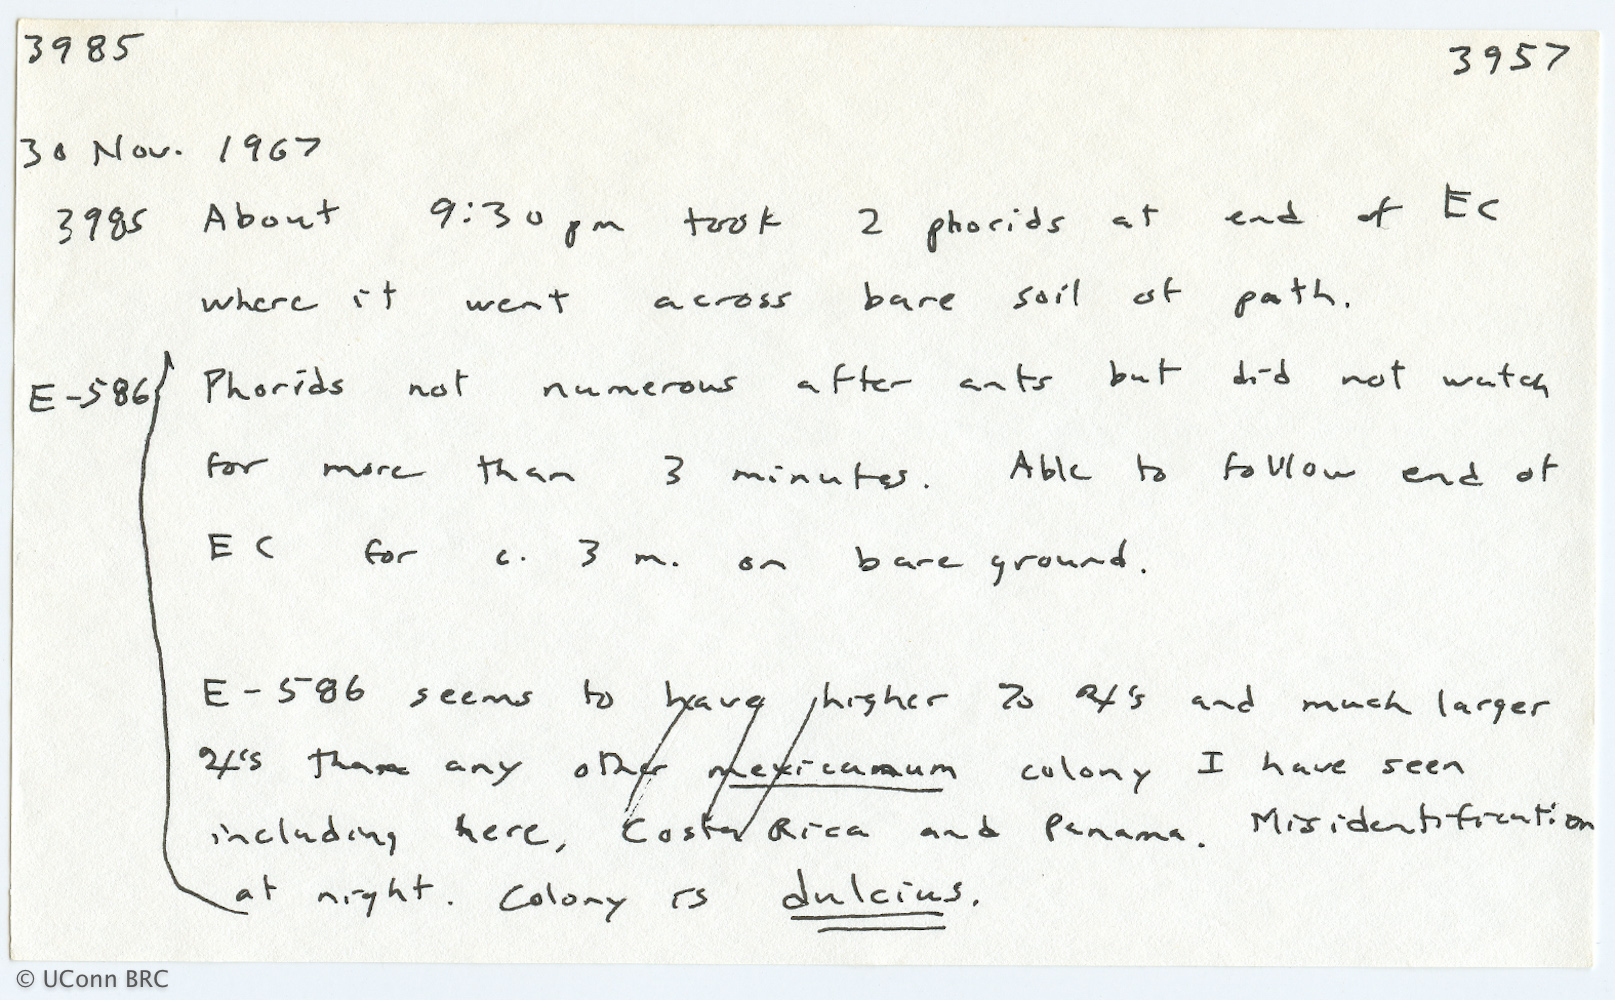 3985 3957
30 Nov. 1967
3985 About 9:30 pm took 2 phorids at end of EC
where it went across bare soil of path.
E-586 Phorids not numerous after ants but did not watch
for more than 3 minutes. Able to follow end of
EC for c. 3 m. on bare ground.
E-586 seems to have higher % 24's and much larger
24's than any other mexicanum colony I have seen
including here, Costa Rica and Panama. Misidentification
at night. Colony is dulcius.
© UConn BRC